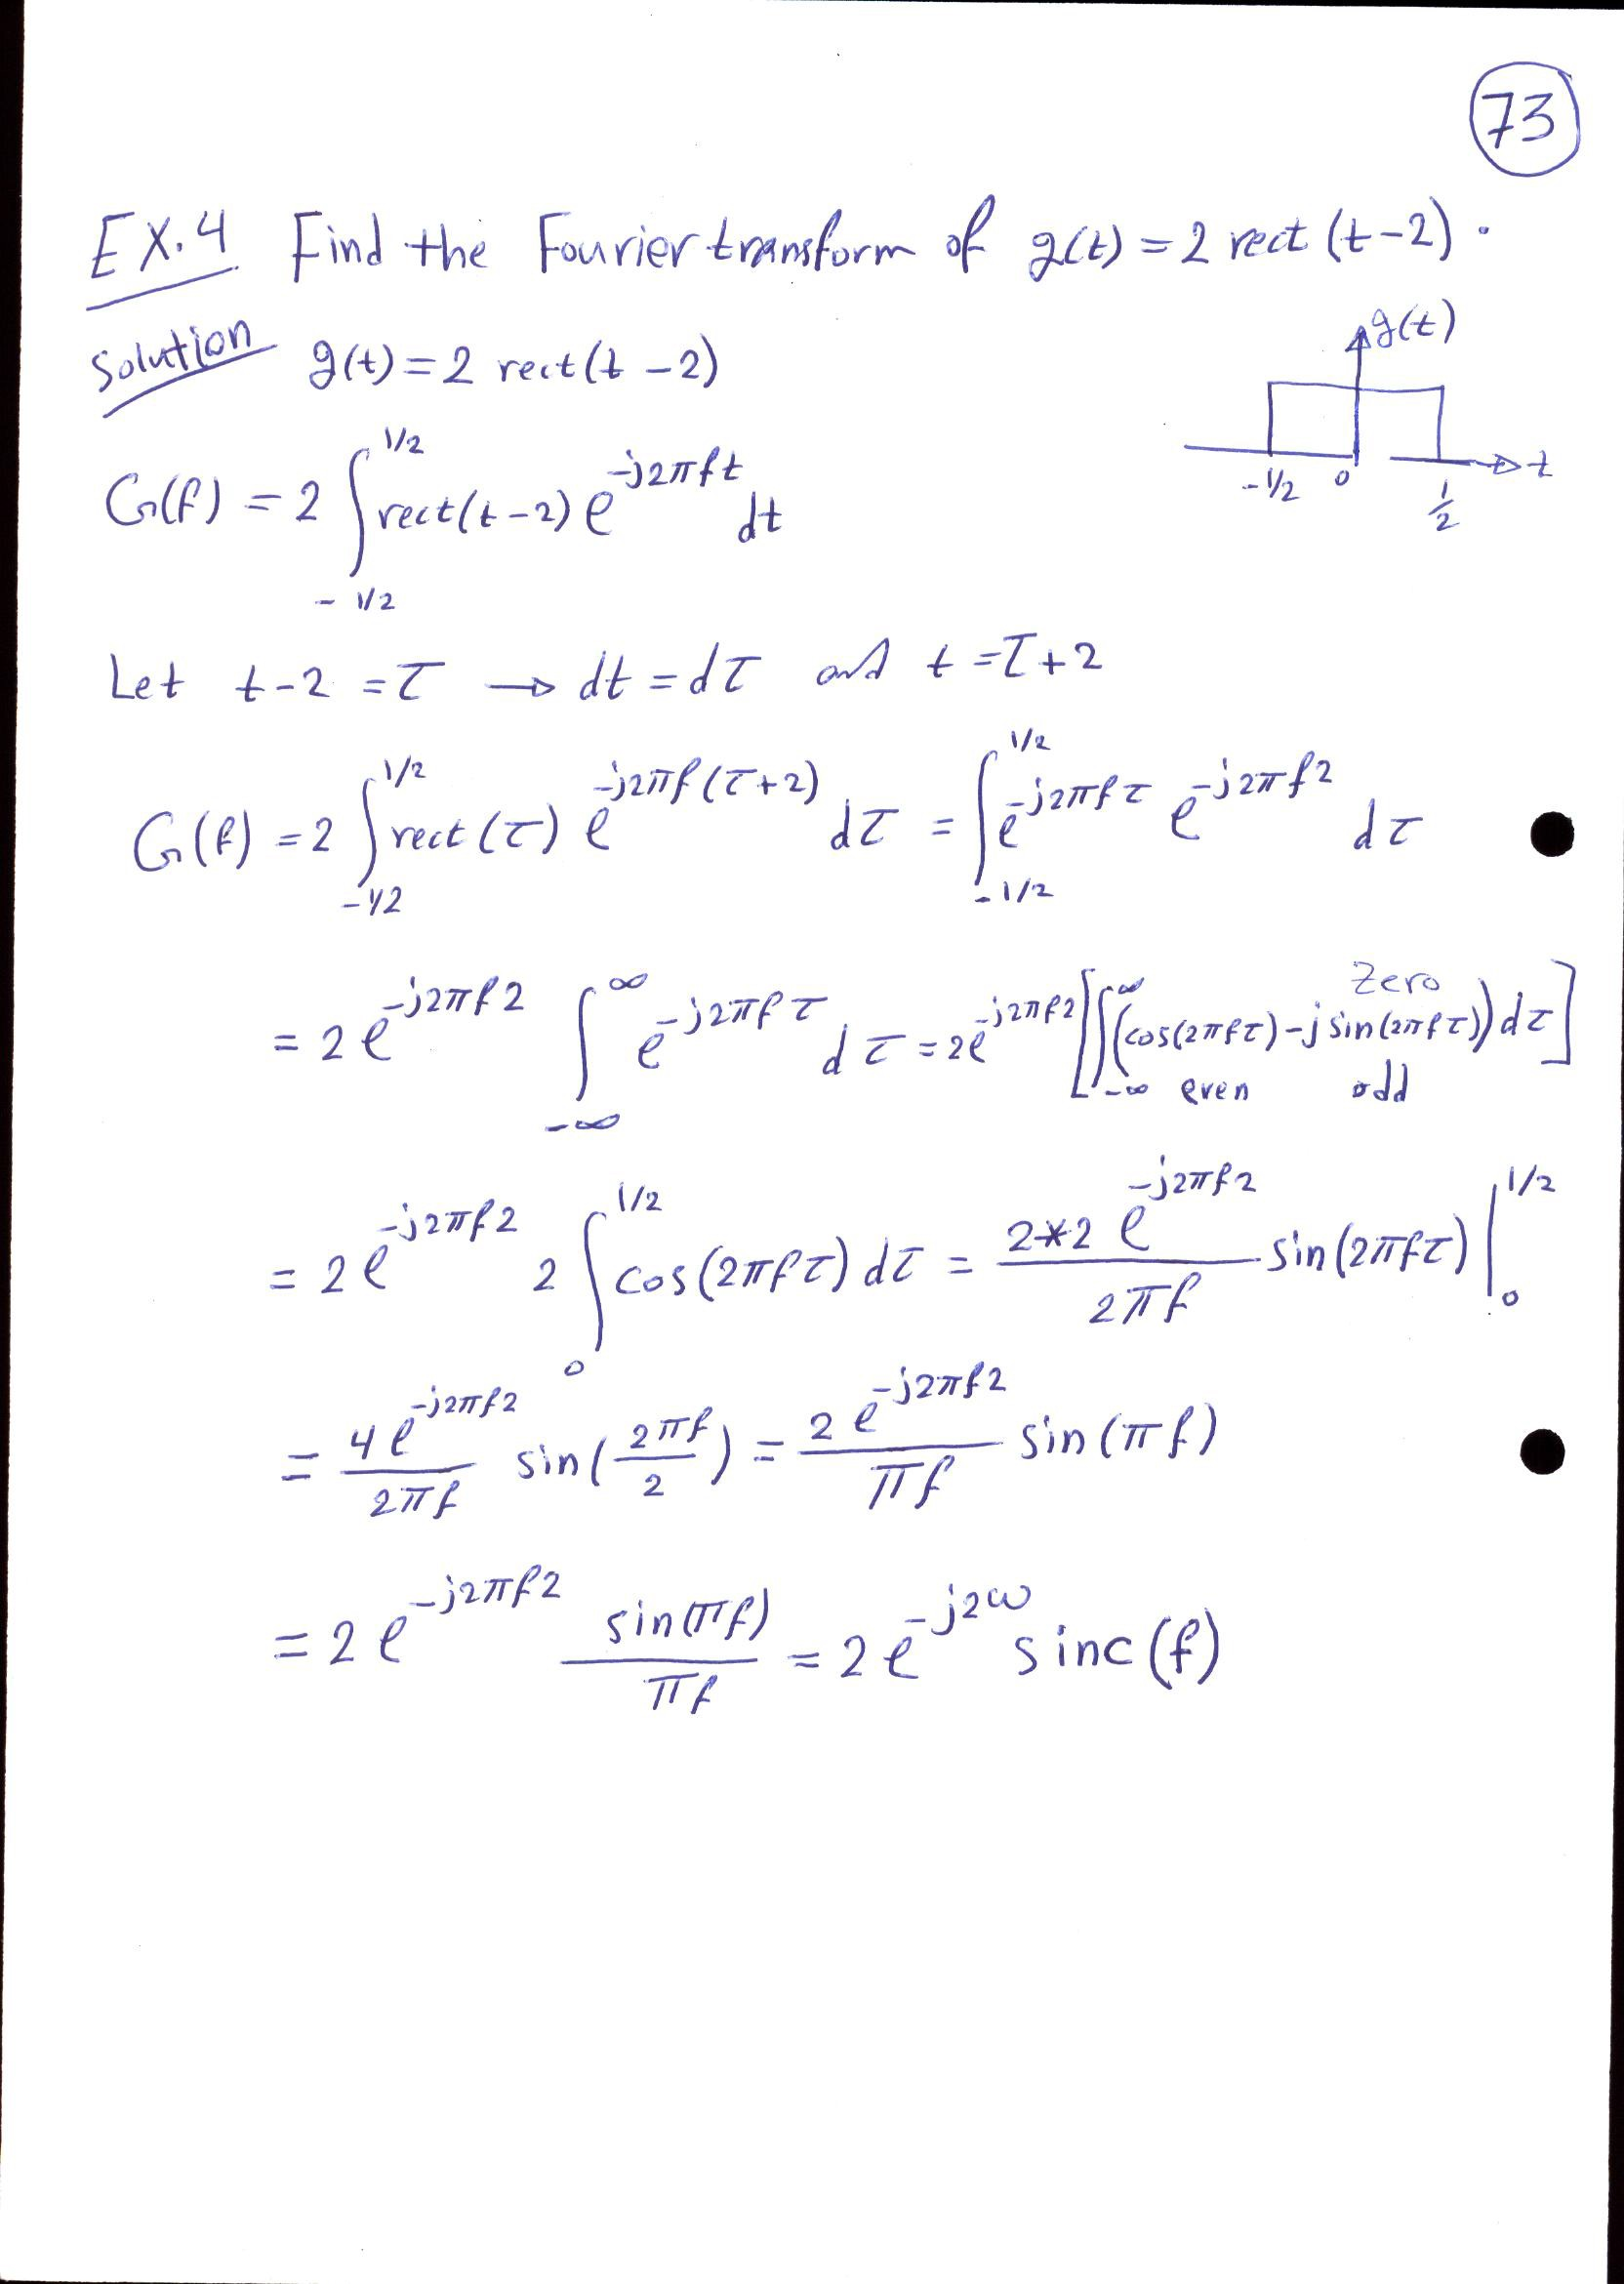 73
EX.4 Find the Fourier transform of g(t) = 2 rect (t-2) .
Solution g(t) = 2 rect (t - 2)
g(t)
-1/2 0 1/2 t
G(f) = 2 ∫_{-1/2}^{1/2} rect(t-2) e^{-j2πft} dt
Let t-2 = τ → dt = dτ and t = τ+2
G(f) = 2 ∫_{-1/2}^{1/2} rect (τ) e^{-j2πf(τ+2)} dτ = ∫_{-1/2}^{1/2} e^{-j2πfτ} e^{-j2πf2} dτ
= 2 e^{-j2πf2} ∫_{-∞}^{∞} e^{-j2πfτ} dτ = 2e^{-j2πf2} [∫_{-∞}^{∞} (cos(2πfτ) - j sin(2πfτ)) dτ]
Zero
even odd
= 2 e^{-j2πf2} 2 ∫_{0}^{1/2} cos(2πfτ) dτ = \frac{2*2 e^{-j2πf2}}{2πf} sin(2πfτ) |_{0}^{1/2}
= \frac{4 e^{-j2πf2}}{2πf} sin(\frac{2πf}{2}) = \frac{2 e^{-j2πf2}}{πf} sin(πf)
= 2 e^{-j2πf2} \frac{sin(πf)}{πf} = 2 e^{-j2ω} sinc(f)